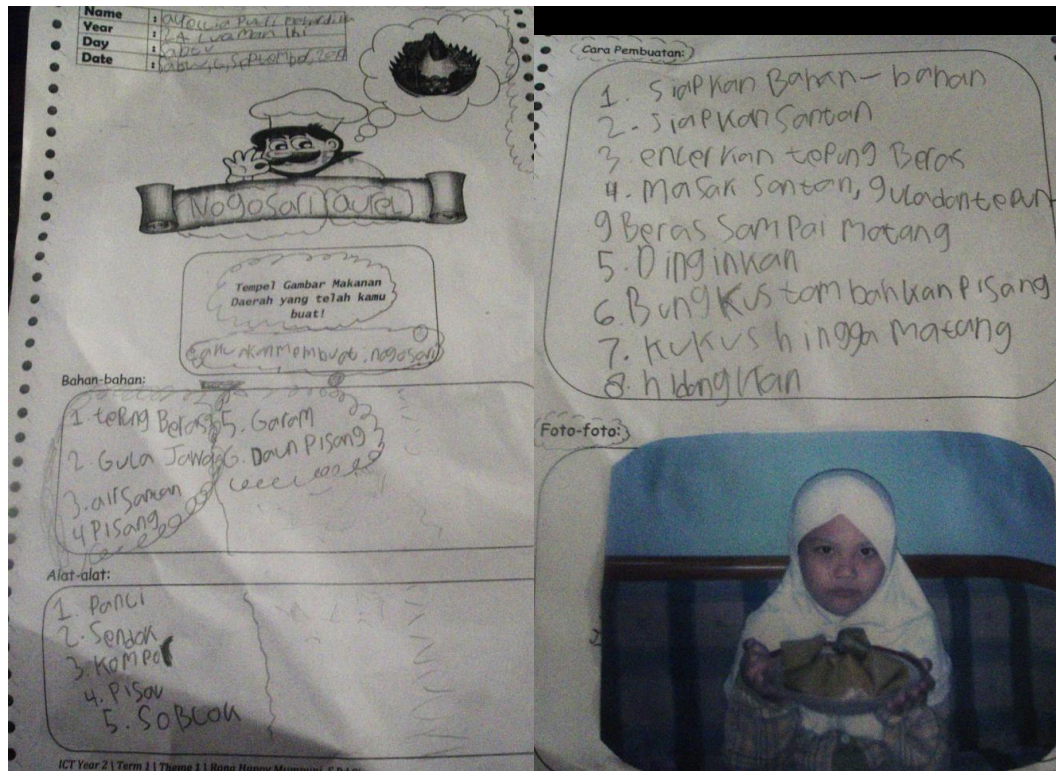 Name :
Year : 2A
Day : Sabtu
Date : Sabtu, 6, September, 
Nogosari (aurel)
Tempel Gambar Makanan
Daerah yang telah kamu
buat!
akan membuat : nogosari
Bahan-bahan:
1. tepung Beras 5. Garam
2. Gula Jawa 6. Daun Pisang
3. air Santan
4 Pisang
Alat-alat:
1. Panci
2. Sendok
3. Kompor
4. Pisau
5. SOBLOK
ICT Year 2 | Term 1 | Theme 1 |
Cara Pembuatan:
1. Siapkan Bahan - bahan
2. Siapkan Santan
3. encerkan tepung Beras
4. masak santan, gula dan tepun
g Beras Sampai matang
5. Dinginkan
6. Bungkus tambahkan Pisang
7. Kukus hingga matang
8. hidangkan
Foto-foto: